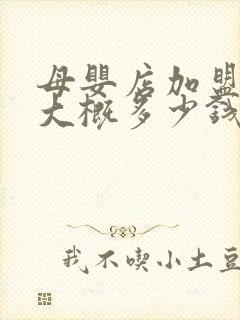 母嬰店加盟
大概多少錢
我不喫小土豆